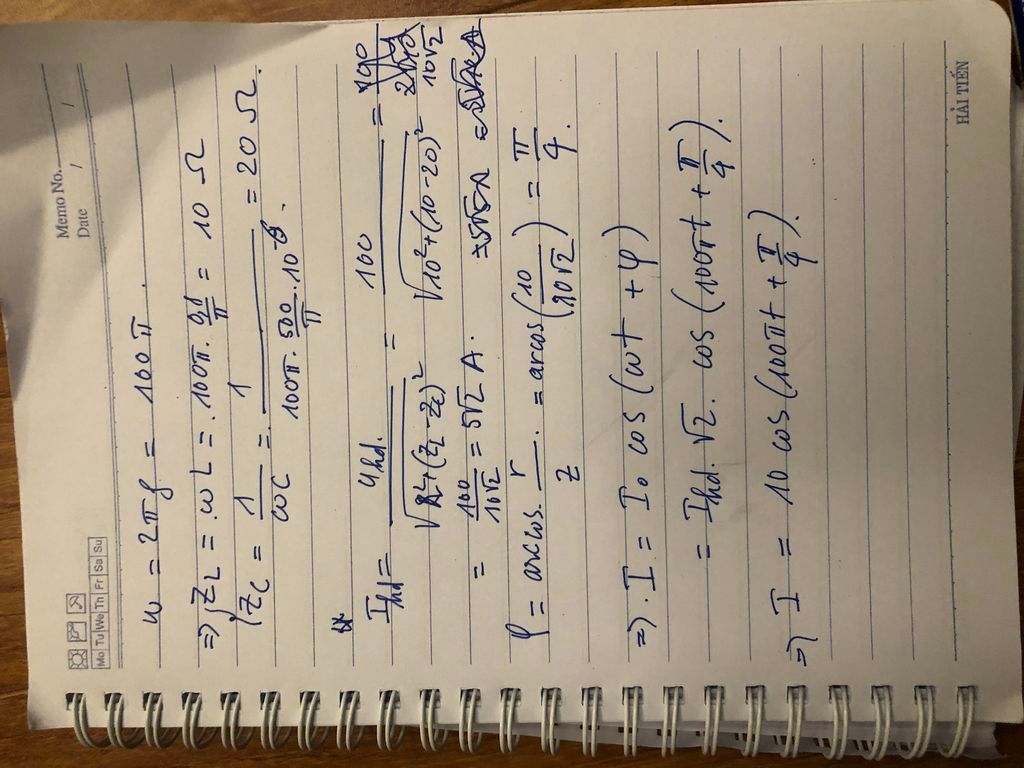 Memo No. / /
Date
Mo Tu We Th Fr Sa Su
ω = 2πf = 100π.
=> { Z_L = ωL = 100π. 0,1/π = 10 Ω
Z_C = 1/ωC = 1/(100π. 500/π .10^-6) = 20 Ω.
I_hd = U_hd./√(R²+(Z_L-Z_C)²) = 100/√(10²+(10-20)²) = 100/10√2
= 100/10√2 = 5√2 A.
φ = arccos. r/z = arcos(10/10√2) = π/4.
=>. I = I₀ cos (ωt + φ)
= I_hd. √2. cos (100πt + π/4).
=> I = 10 cos (100πt + π/4).
HẢI TIẾN